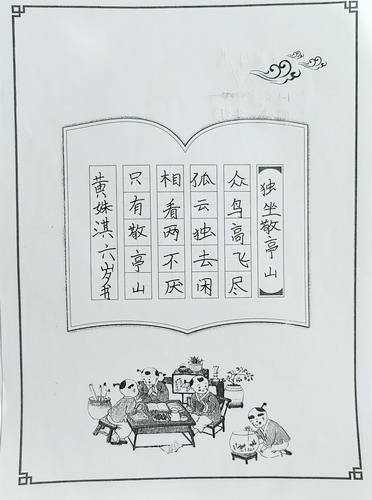 独坐敬亭山
众鸟高飞尽
孤云独去闲
相看两不厌
只有敬亭山
黄姝淇六岁书